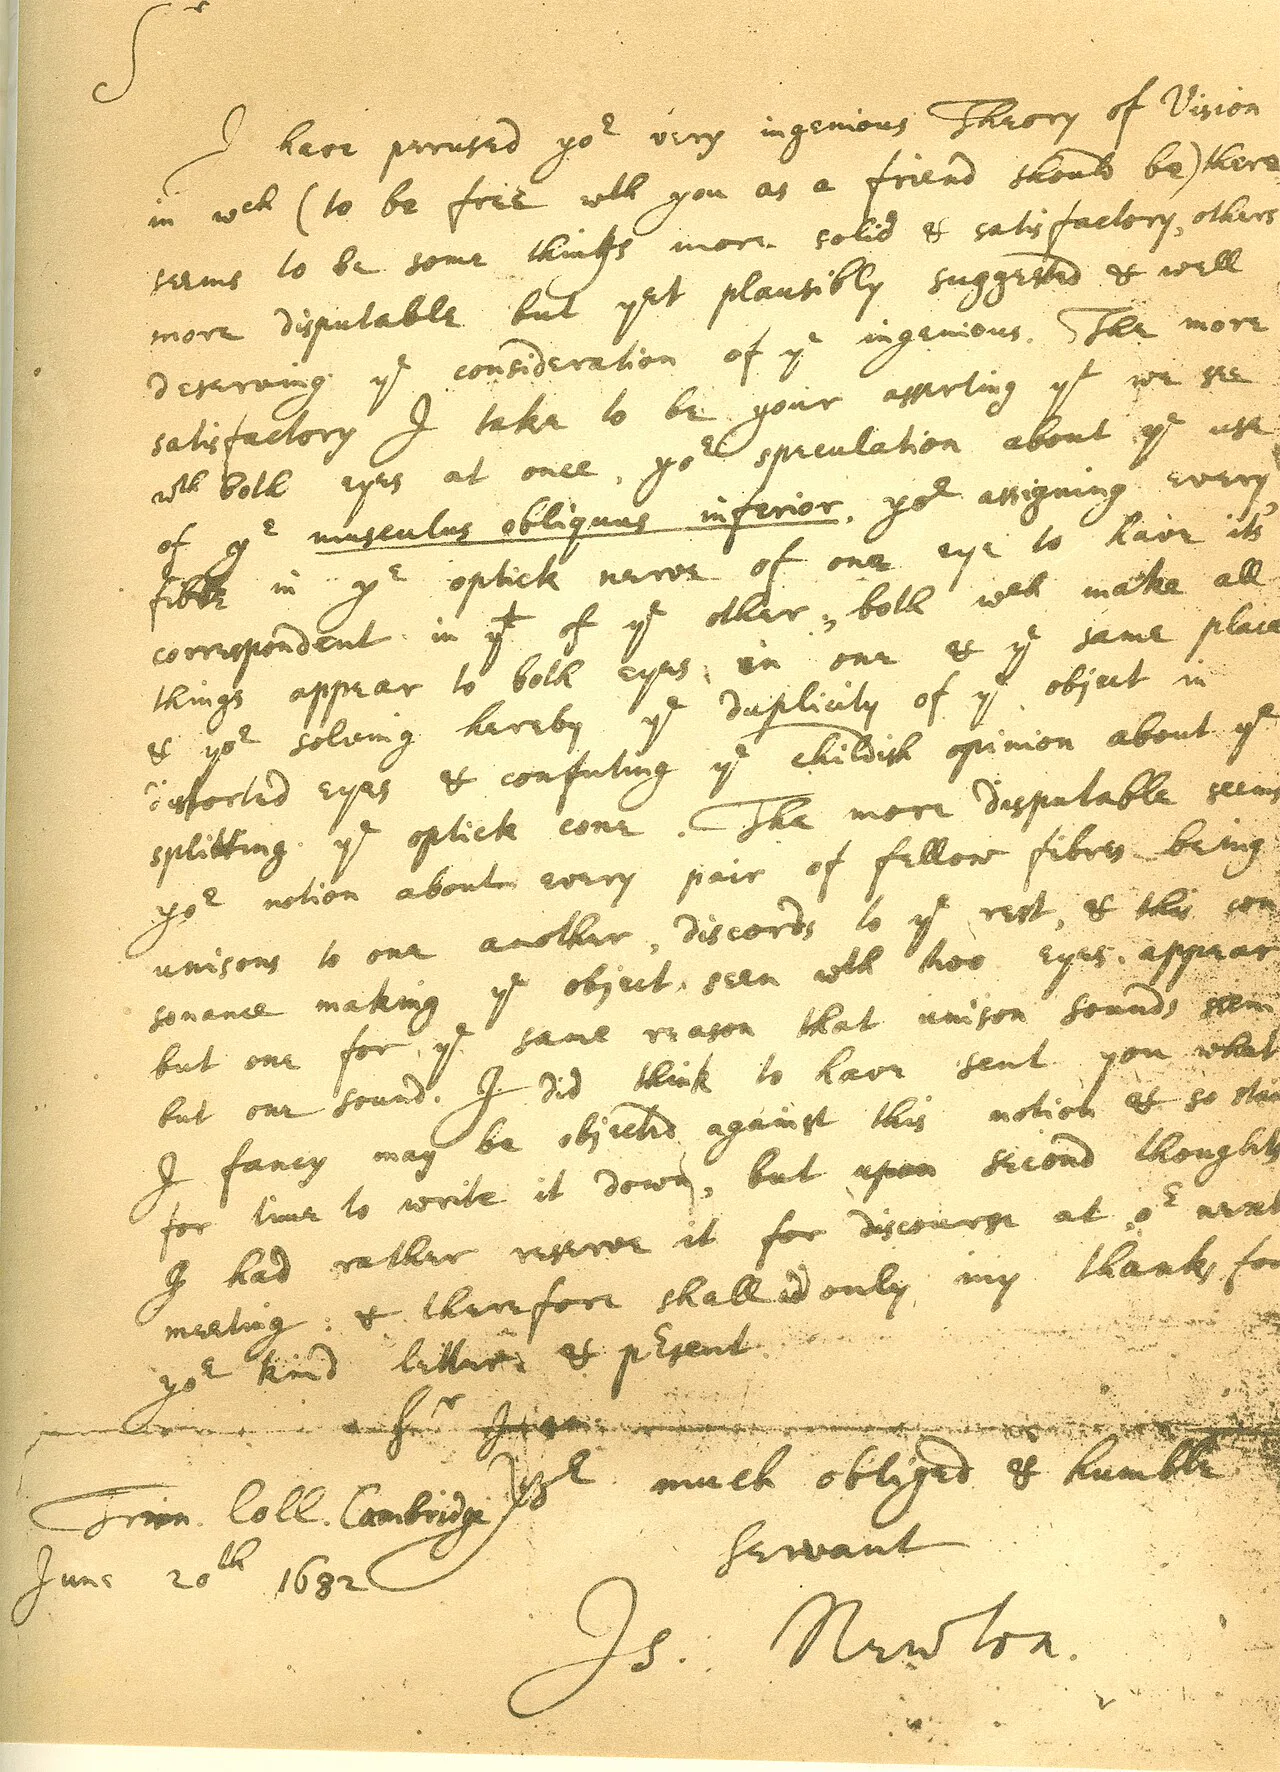 Sr
I have perused yor very ingenious Theory of Vision
in wch (to be free wth you as a friend should be) there
seems to be some things more solid & satisfactory, others
more disputable but yet plausibly suggested & well
deserving ye consideration of ye ingenious. The more
satisfactory I take to be your asserting yt we see
wth both eyes at once, yor speculation about ye use
of ye musculus obliquus inferior, yor assigning every
fibre in ye optick nerve of one eye to have its
correspondent in yt of ye other, both wch make all
things appear to both eyes in one & ye same place
& yor solving hereby ye duplicity of ye object in
distorted eyes & confuting ye childish opinion about ye
splitting ye optick cone. The more disputable seems
yor notion about every pair of fellow fibres being
unisons to one another, discords to ye rest, & this con
sonance making ye object seen wth two eyes appear
but one for ye same reason that unison sounds seem
but one sound. I did think to have sent you what
I fancy may be objected against this notion & so staid
for time to write it down, but upon second thoughts
I had rather reserve it for discourse at or next
meeting: & therefore shall add only my thanks for
yor kind letter & present.
Sr I am
Yor much obliged & humble
Trin. Coll. Cambridge
Servant
June 20th 1682
Is. Newton.